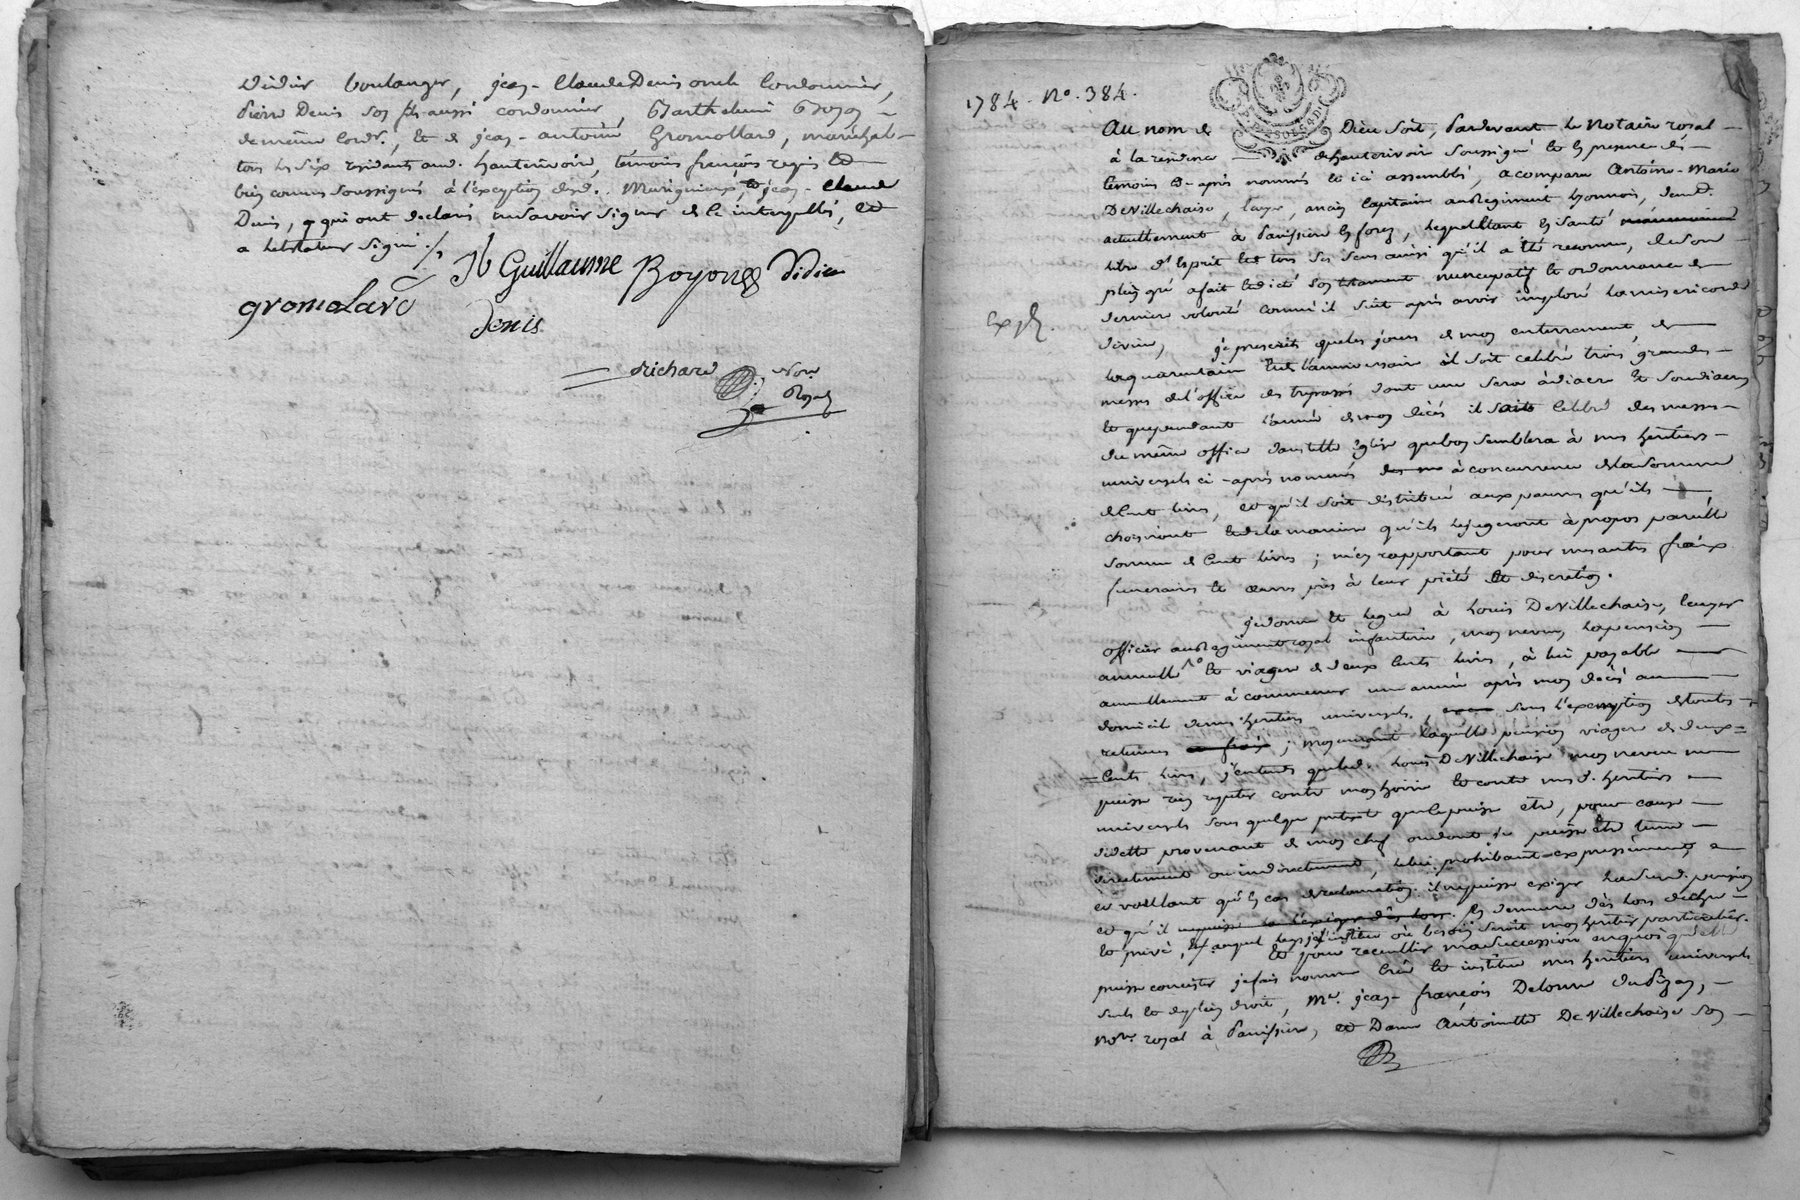 Didier boulanger, jean-Claude Denis oncle Cordonnier,
Pierre Denis son fils aussi cordonnier Barthelemi Boyon
de même cord.r, et de jean-antoine Gromollard, maréchal
tous les six residants aud. hauterivoire, témoins françois regis et
bien connus soussignés à l'exception desd. Murigneux, et jean-Claude
Denis, qui ont declaré ne savoir signer de ce interpellés, et
a le testateur signé ./.
Jb Guillaume Boyon Didier
gromolard
Denis
Richard No.re
Royal
1784. N°. 384.
Au nom de Dieu soit, Pardevant le Notaire royal
à la residence de hauterivoire soussigné et en presence des
temoins ci-après nommés et ici assemblés, a comparu Antoine-Marie
DeVillechaise, Ecuyer, ancien Capitaine au regiment Lyonnois, demt.
actuellement à Panissiere en forez, lequel étant en santé
libre d'esprit et de tous ses sens ainsi qu'il a été reconnu, de son
plein gré a fait et dicté son testament nuncupatif et ordonnance de
derniere volonté comme il suit après avoir imploré la misericorde
Exp.
divine, je prescris que les jours de mon enterrement, de
la quarantaine et de l'anniversaire il soit celebré trois grandes
messes de l'office des trepassés dont une sera à diacre et soudiacre
et que pendant l'année de mon décès il soit celebré des messes
du même office dans telle église que bon semblera à mes heritiers
universels ci-après nommés à concurrence de la somme
de Cent livres, et qu'il soit distribué aux pauvres qu'ils
choisiront et de la maniere qu'ils le jugeront à propos pareille
somme de Cent livres ; m'en rapportant pour mes autres fraix
funeraires et oeuvres pies à leur piété et discretion.
je donne et legue à Louis DeVillechaise, Ecuyer
officier au regiment royal infanterie, mon neveu, la pension
annuelle et viagere de deux Cents livres, à lui payable
annuellement à commencer une année après mon décès au
domicile de mes heritiers universels, sous l'exemption de toutes
retenues ; moyennant laquelle pension viagere de deux
Cents livres, j'entends que led. Louis DeVillechaise mon neveu ne
puisse rien repeter contre mon hoirie et contre mesd. heritiers
universels sous quelque pretexte que ce puisse être, pour cause
de dette provenant de mon chef ou dont je puisse être tenu
directement ou indirectement, le lui prohibant expressement, et
voulant qu'en cas de reclamation il ne puisse exiger lad. pension
et qu'il en demeure dès lors dechu
et privé, auquel legs je l'institue où besoin seroit mon heritier particulier.
et pour recueillir ma succession en quoi qu'elle
puisse consister je fais nomme Crée et institue mes heritiers universels
seuls et de plein droit, M.e jean-françois Delorme du Pizay,
No.re royal à Panissiere, et Dame Antoinette DeVillechaise son